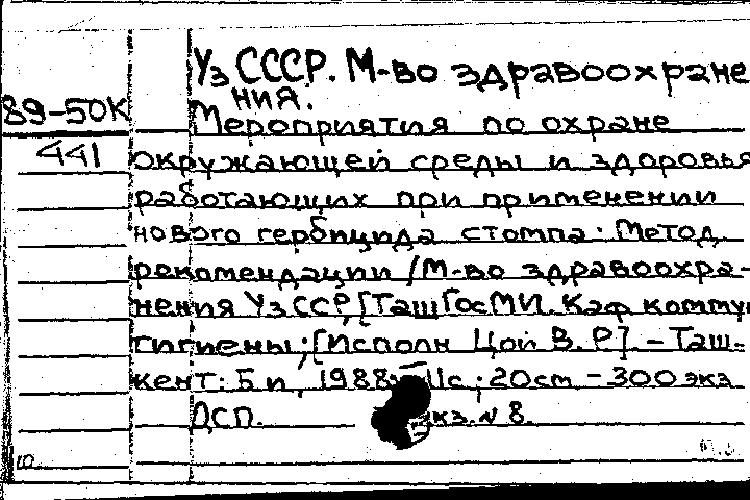 Уз СССР. М-во здравоохране
ния.
89-50К
Мероприятия по охране
441
окружающей среды и здоровья
работающих при применении
нового гербицида стомпа: Метод.
рекомендации /М-во здравоохра-
нения Уз ССР, [ТашГосМИ. Каф. комму
гигиены; [Исполн Цой В. Р]. – Таш-
кент: Б и, 1988. 11с.; 20см – 300 экз
ДСП. экз. № 8.
10.